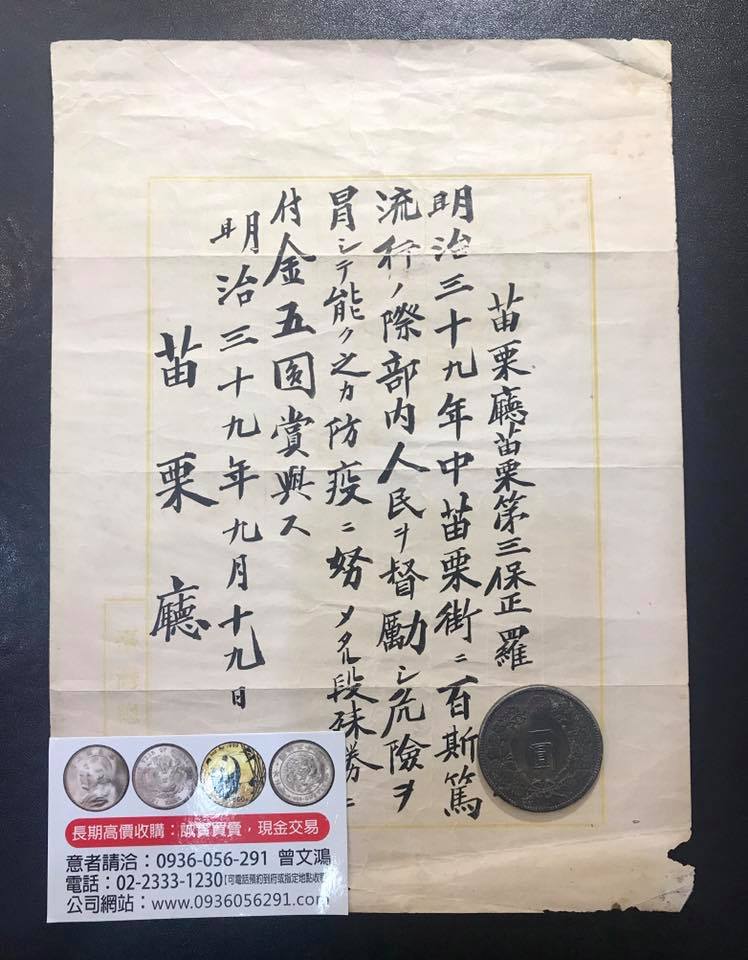 苗栗廳苗栗第三保正 羅
明治三十九年中苗栗街ニ百斯篤
流行ノ際部内人民ヲ督勵シ危險ヲ
冒シテ能ク之カ防疫ニ努メタル段殊勝ニ
付金五圓賞與ス
明治三十九年九月十九日
苗栗廳
一圓
長期高價收購：誠實買賣，現金交易
意者請洽：0936-056-291 曾文鴻
電話：02-2333-1230【可電話預約到府或指定地點收購
公司網站：www.0936056291.com